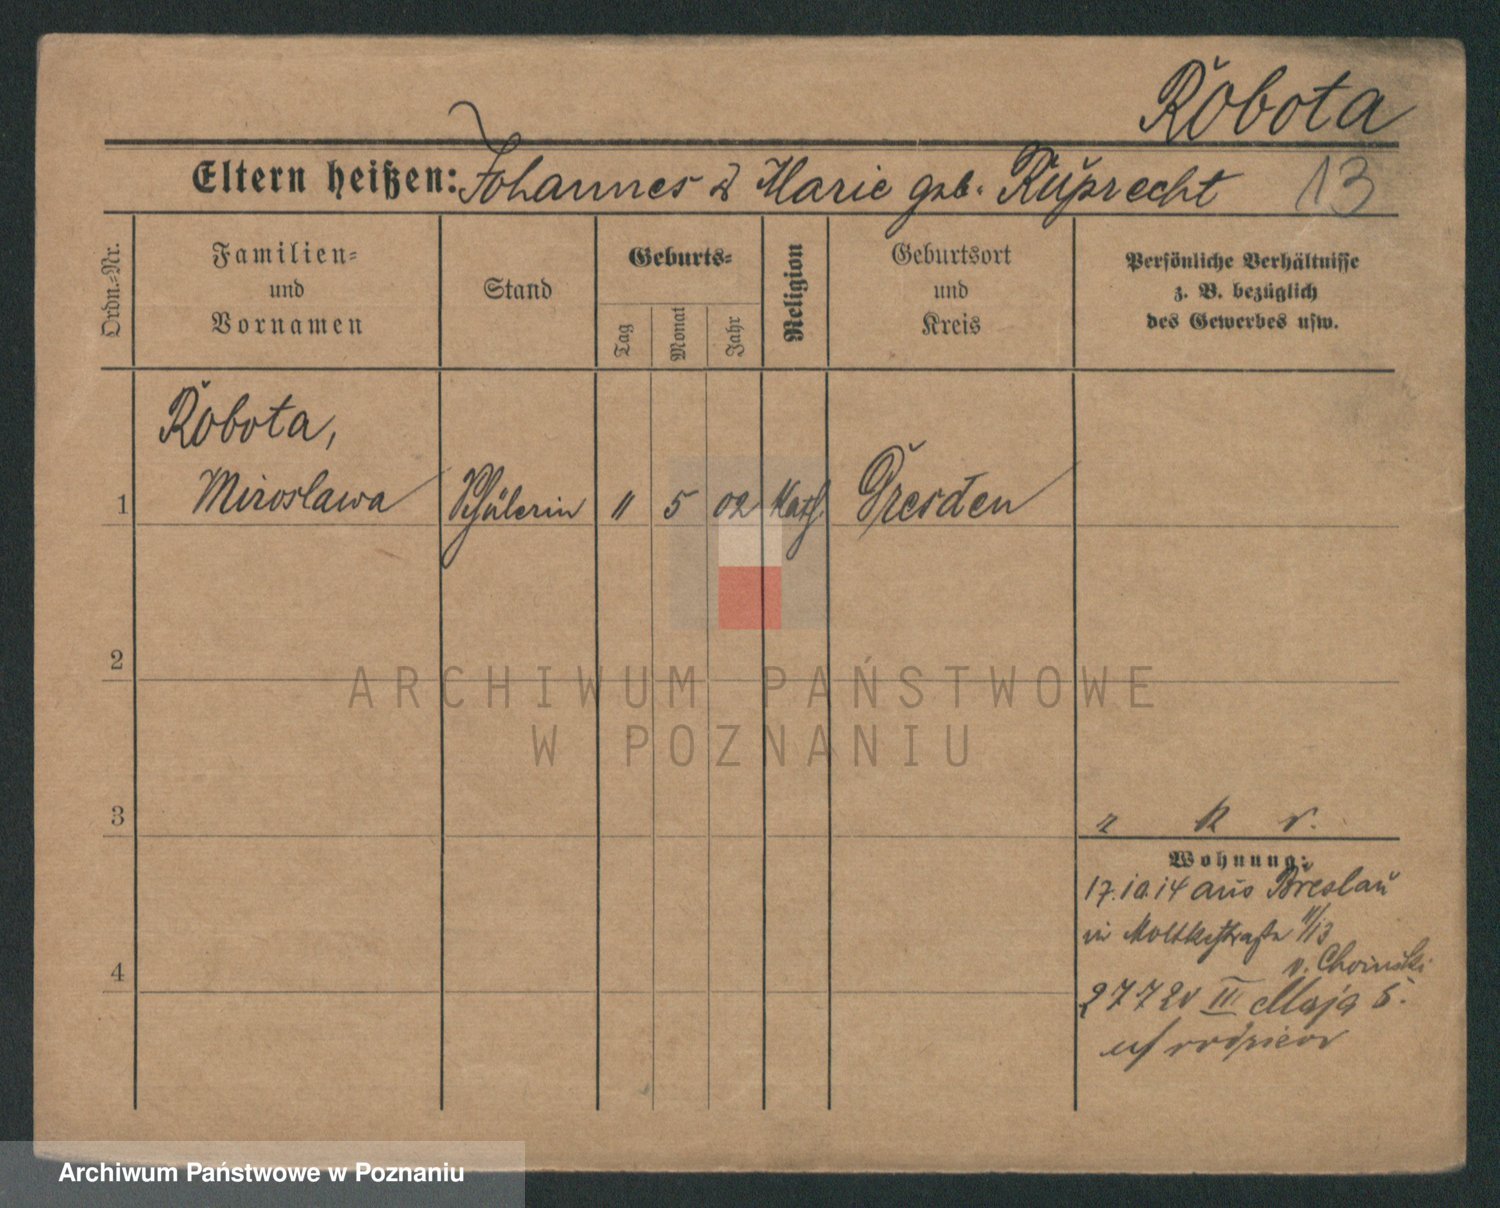 Robota
Eltern heißen: Johannes & Marie geb. Ruprecht 13
Ordn.=Nr.
Familien=
und
Vornamen
Stand
Geburts=
Tag
Monat
Jahr
Religion
Geburtsort
und
Kreis
Persönliche Verhältnisse
z. B. bezüglich
des Gewerbes usw.
Robota,
1 Miroslawa Schülerin 11 5 02 Kath Dresden
2
3
4
Wohnung:
17.10.14 aus Breslau
in Moltkestraße 11/13
v. Choinski
27 7 20 III Maja 5.
ARCHIWUM PAŃSTWOWE
W POZNANIU
Archiwum Państwowe w Poznaniu